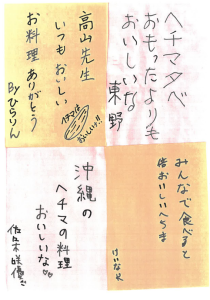 ヘチマタベ
おもったよりも
おいしいな
東野
高山先生
いつもおいしい
お料理ありがとう
Byひらりん
ヘチマは
おいしいっ!!
みんなで食べると
皆おいしいへちま
沖縄の
ヘチマの料理
おいしいな♡♡
佐々木咲優